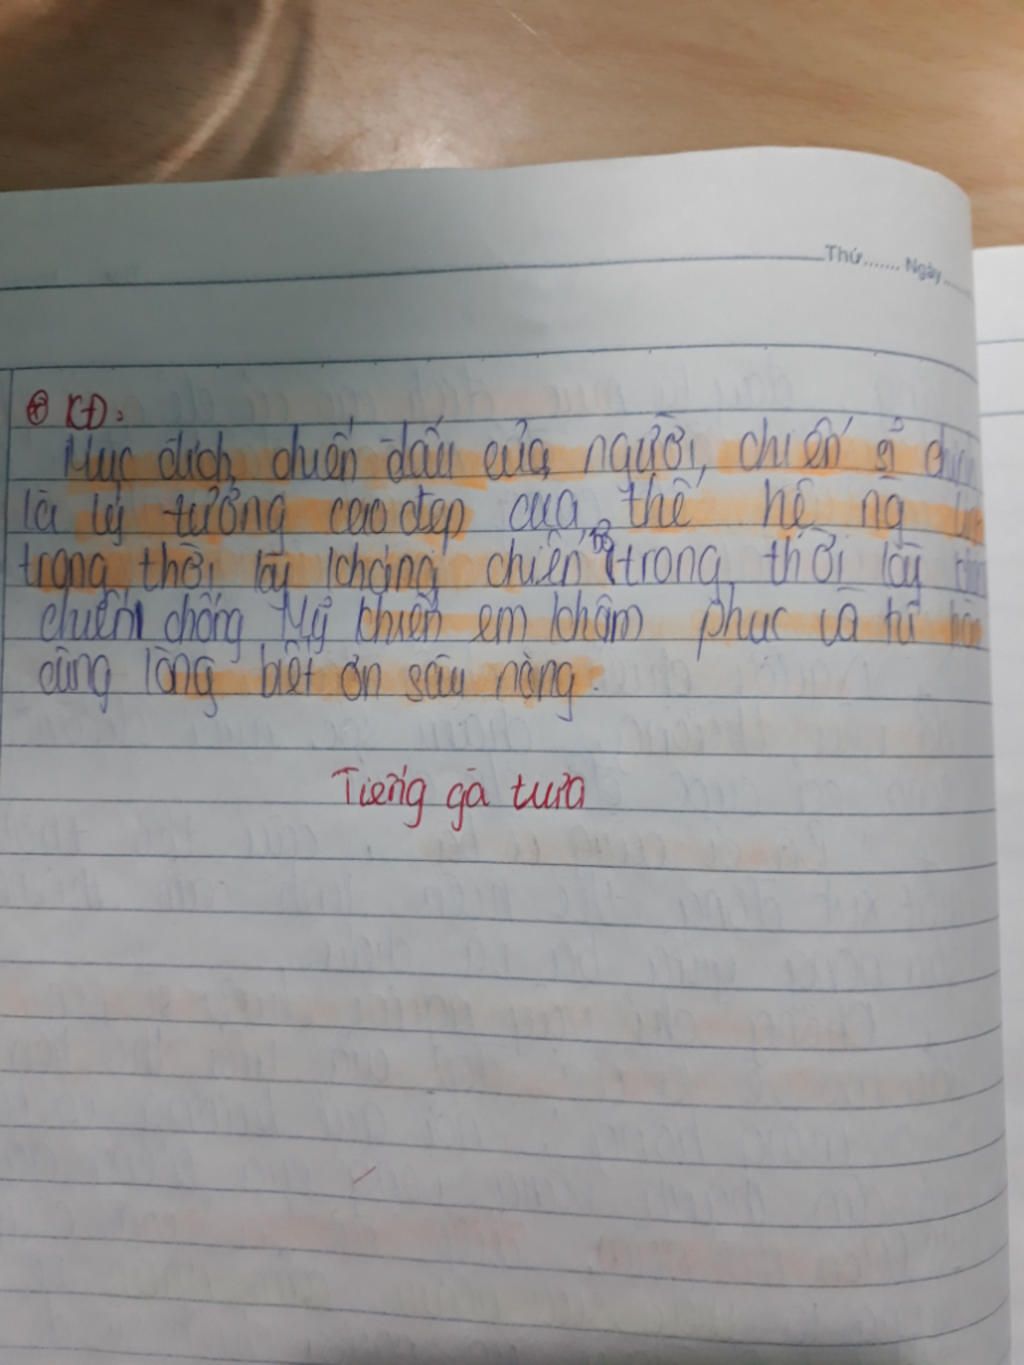 Thứ....... Ngày.......
⊕ KĐ:
Mục đích chiến đấu của người chiến sĩ
là lý tưởng cao đẹp của thế hệ ng
trong thời lấy kháng chiến trong thời lấy
chiến chống Mỹ khiến em khâm phục và tự
cùng lòng biết ơn sâu nặng.
Tiếng gà tưa